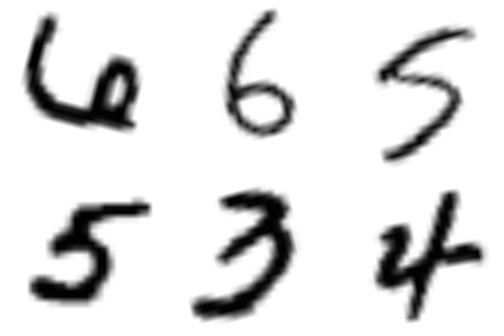 6 6 5
5 3 4